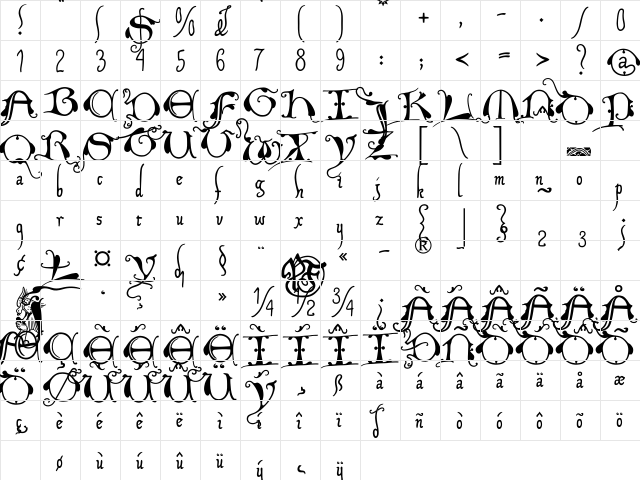 ! ( $ % & ( ) * + , - . / 0
1 2 3 4 5 6 7 8 9 : ; < = > ? @
A B C D E F G H I J K L M N O P
Q R S T U V W X Y Z [ \ ]
a b c d e f g h i j k l m n o p
q r s t u v w x y z { | } ~ 2 3 j
¢ £ ¤ ¥ § ¨ « ¬ ® ¯
· » ¼ ½ ¾ ¿ À Á Â Ã Ä Å
Æ Ç È É Ê Ë Ì Í Î Ï Ð Ñ Ò Ó Ô Õ
Ö Ø Ù Ú Û Ü Ý ß à á â ã ä å æ
ç è é ê ë ì í î ï ñ ò ó ô õ ö
ø ù ú û ü ý ÿ